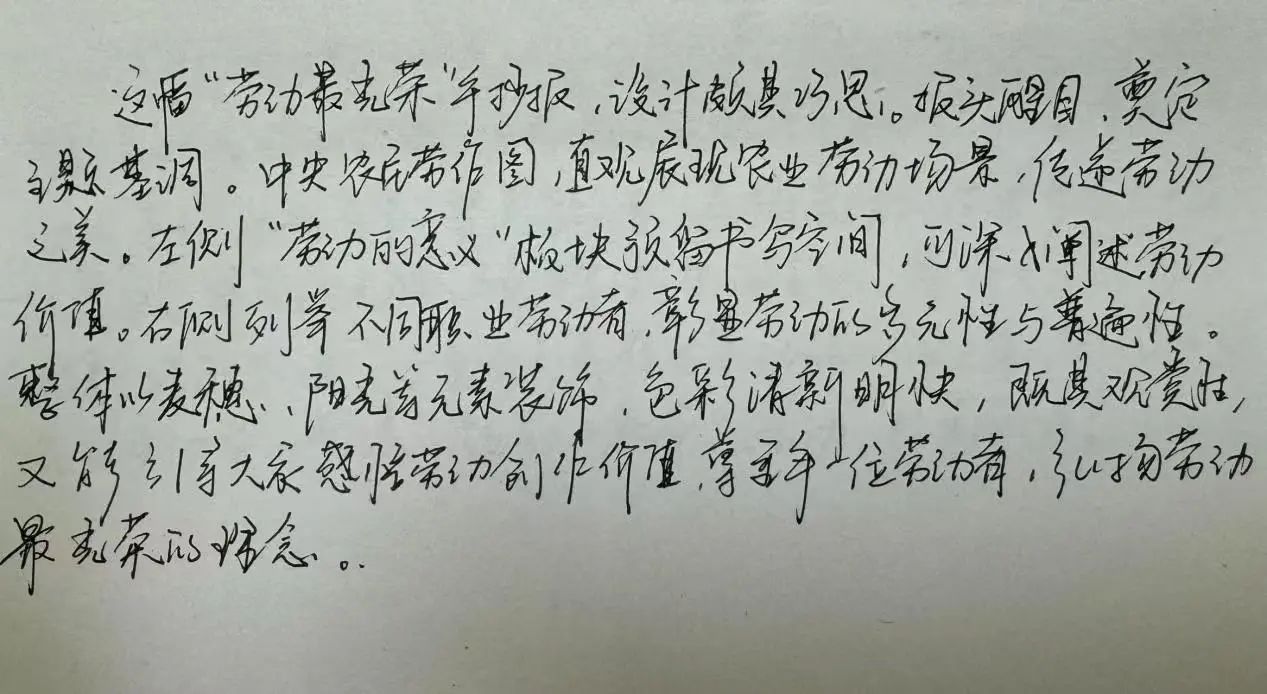 这幅“劳动最光荣”手抄报，设计颇具巧思。报头醒目，奠定
主题基调。中央农民劳作图，直观展现农业劳动场景，传递劳动
之美。左侧“劳动的意义”板块预留书写空间，可深入阐述劳动
价值。右侧列举不同职业劳动者，彰显劳动的多元性与普遍性。
整体以麦穗、阳光等元素装饰，色彩清新明快，既具观赏性，
又能引导大家感悟劳动创作价值，尊重每一位劳动者，弘扬劳动
最光荣的理念。